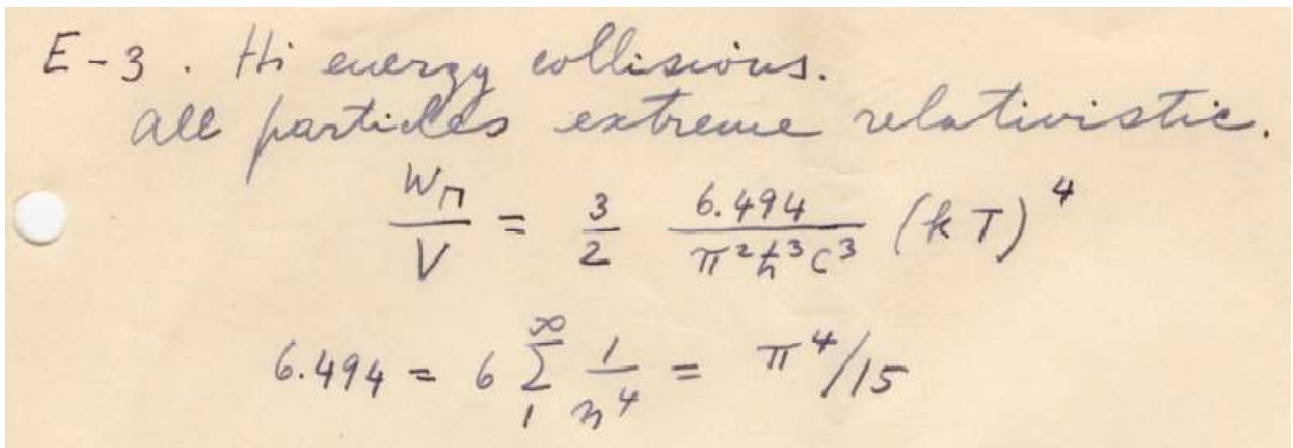 E-3. Hi energy collisions.
all particles extreme relativistic.
W_Π/V = 3/2 6.494/π²ħ³c³ (kT)⁴
6.494 = 6 ∑₁^∞ 1/n⁴ = π⁴/15